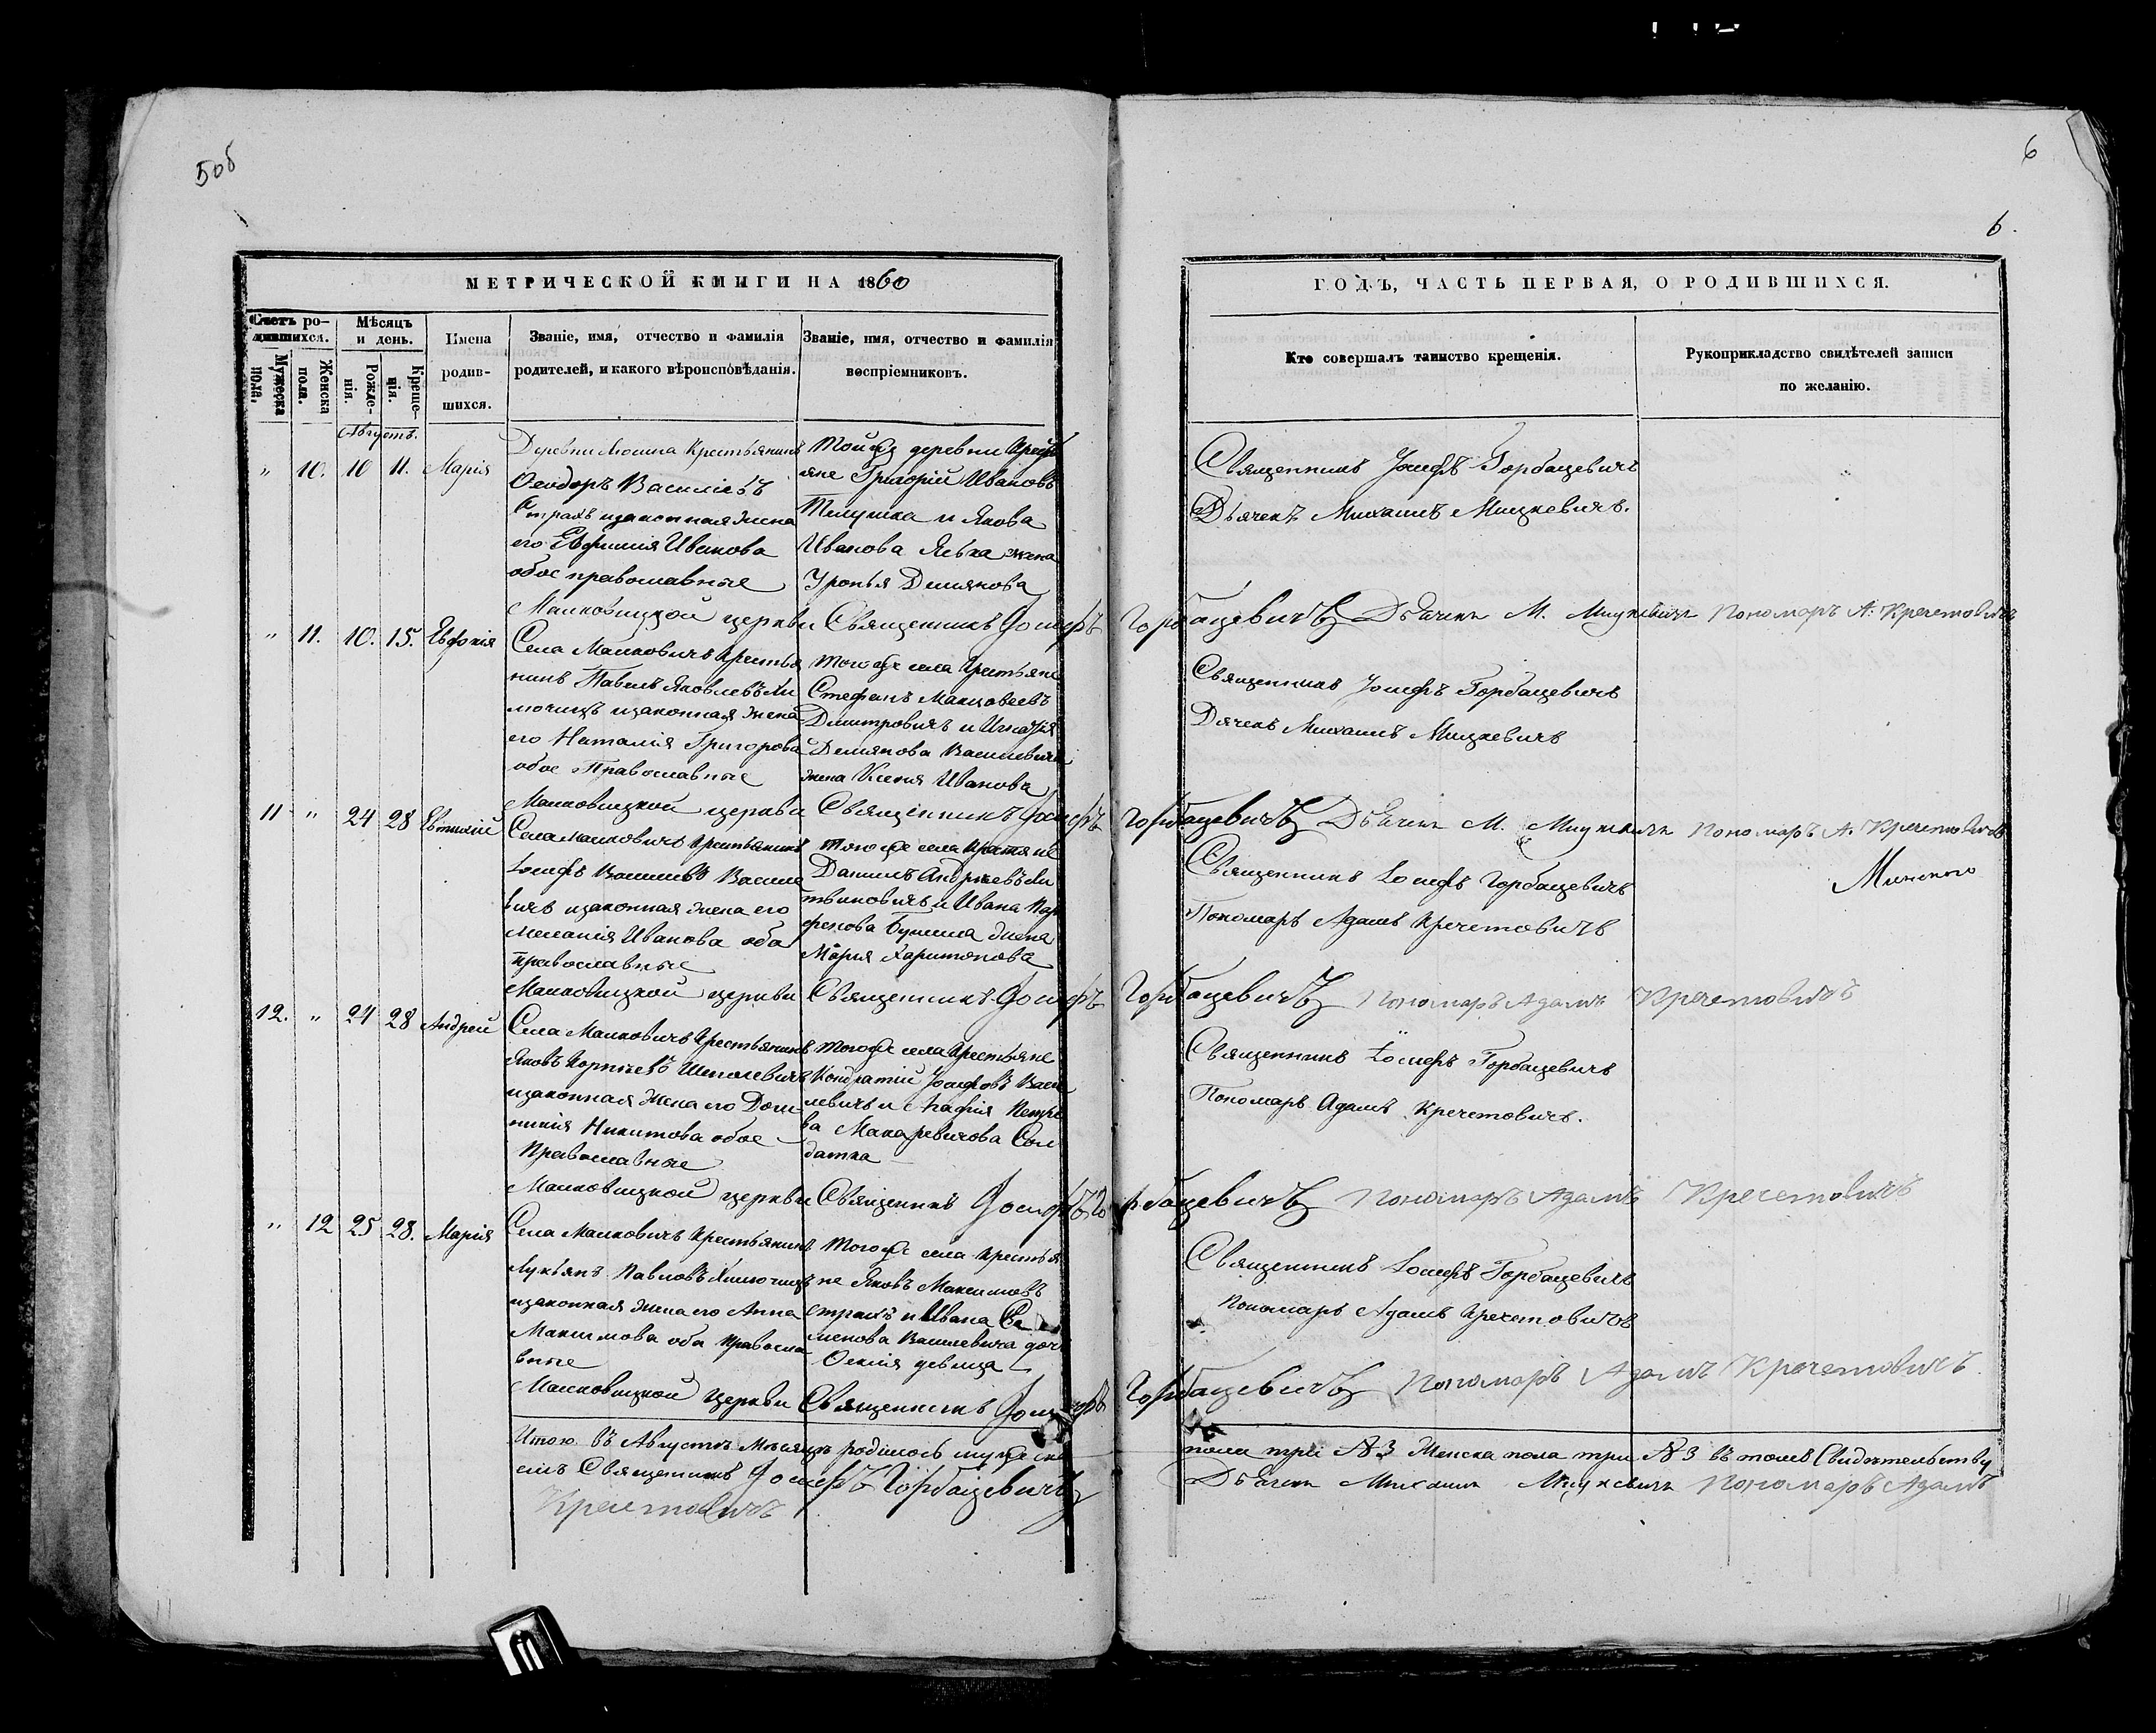 5 об
6
6.
МЕТРИЧЕСКОЙ КНИГИ НА 1860
ГОДЪ, ЧАСТЬ ПЕРВАЯ, О РОДИВШИХСЯ.
Счетъ ро-
дившихся.
Мужеска
пола.
Женска
пола.
Мѣсяцъ
и день.
Рожде-
нія.
Креще-
нія.
Имена
родив-
шихся.
Званіе, имя, отчество и фамилія
родителей, и какого вѣроисповѣданія.
Званіе, имя, отчество и фамилія
воспріемниковъ.
Кто совершалъ таинство крещенія.
Рукоприкладство свидѣтелей записи
по желанію.
Августъ.
" 10. 10 11. Марія
Деревни Люсина Крестьянинъ
Ѳеодоръ Василіевъ
Страхъ изаконная жена
его Евфимія Иванова
обое православные
Тойже деревни Крестья
яне Григорій Ивановъ
и Якова
Иванова жена
Демянова
Священникъ Іосифъ Горбацевичъ
Дьячекъ Михаилъ Мицкевичъ.
Малковицкой церкви Священникъ Іосифъ Горбацевичъ Дьячекъ М. Мицкевичъ Пономаръ А. Кречетовичъ
" 11. 10. 15. Евфонія
Села Малковичъ Крестья
нинъ Павелъ Яковлевъ Кли
мочицъ изаконная жена
его Наталія Григорова
обое Православные
Тогоже села Крестьяне
Стефанъ
Дмитровичъ и Игнатія
Демянова Василевича
жена Ксенія Иванова
Священникъ Іосифъ Горбацевичъ
Дячекъ Михаилъ Мицкевичъ
Малковицкой церкви Священникъ Іосифъ Горбацевичъ Дьячекъ М. Мицкевичъ Пономаръ А. Кречетовичъ
11 " 24 28 Евтихій
Села Малковичъ Крестьянинъ
Іосифъ Василевъ Василе
вичъ изаконная жена его
Меланія Иванова оба
православные
Тогоже села Крестяне
Данилъ Андреевъ Ли
твиновичъ и Ивана Пар
фенова жена
Марія Харитонова
Священникъ Іосифъ Горбацевичъ
Пономаръ Адамъ Кречетовичъ
Малковицкой церкви Священникъ Іосифъ Горбацевичъ Пономаръ Адамъ Кречетовичъ
12. " 24 28 Андрей
Села Малковичъ Крестьянинъ
Яковъ Корніевъ Шеполевичъ
изаконная жена его Доми
никія Никитова обое
Православные
Тогоже села Крестьяне
Кондратій Іосифовъ Васи
левичъ и Агафія Петро
ва Макаревичова Сол
датка
Священникъ Іосифъ Горбацевичъ
Пономаръ Адамъ Кречетовичъ.
Малковицкой церкви Священникъ Іосифъ Горбацевичъ Пономаръ Адамъ Кречетовичъ
" 12 25 28. Марія
Села Малковичъ Крестьянинъ
Лукьянъ Павловъ Климочицъ
изаконная жена его Анна
Максимова оба Правосла
вные
Тогоже села Крестья
не Яковъ Максимовъ
Страхъ и Ивана Се
менова Василевича дочь
девица
Священникъ Іосифъ Горбацевичъ
Пономаръ Адамъ Кречетовичъ
Малковицкой Церкви Священникъ Іосифъ Горбацевичъ Пономаръ Адамъ Кречетовичъ.
Итого въ Августѣ Месяцѣ родилось мужеска пола три № 3 Женска пола три № 3 въ томъ Свидетельству
емъ Священникъ Іосифъ Горбацевичъ Дьячекъ Михаилъ Мицкевичъ Пономаръ Адамъ
Кречетовичъ